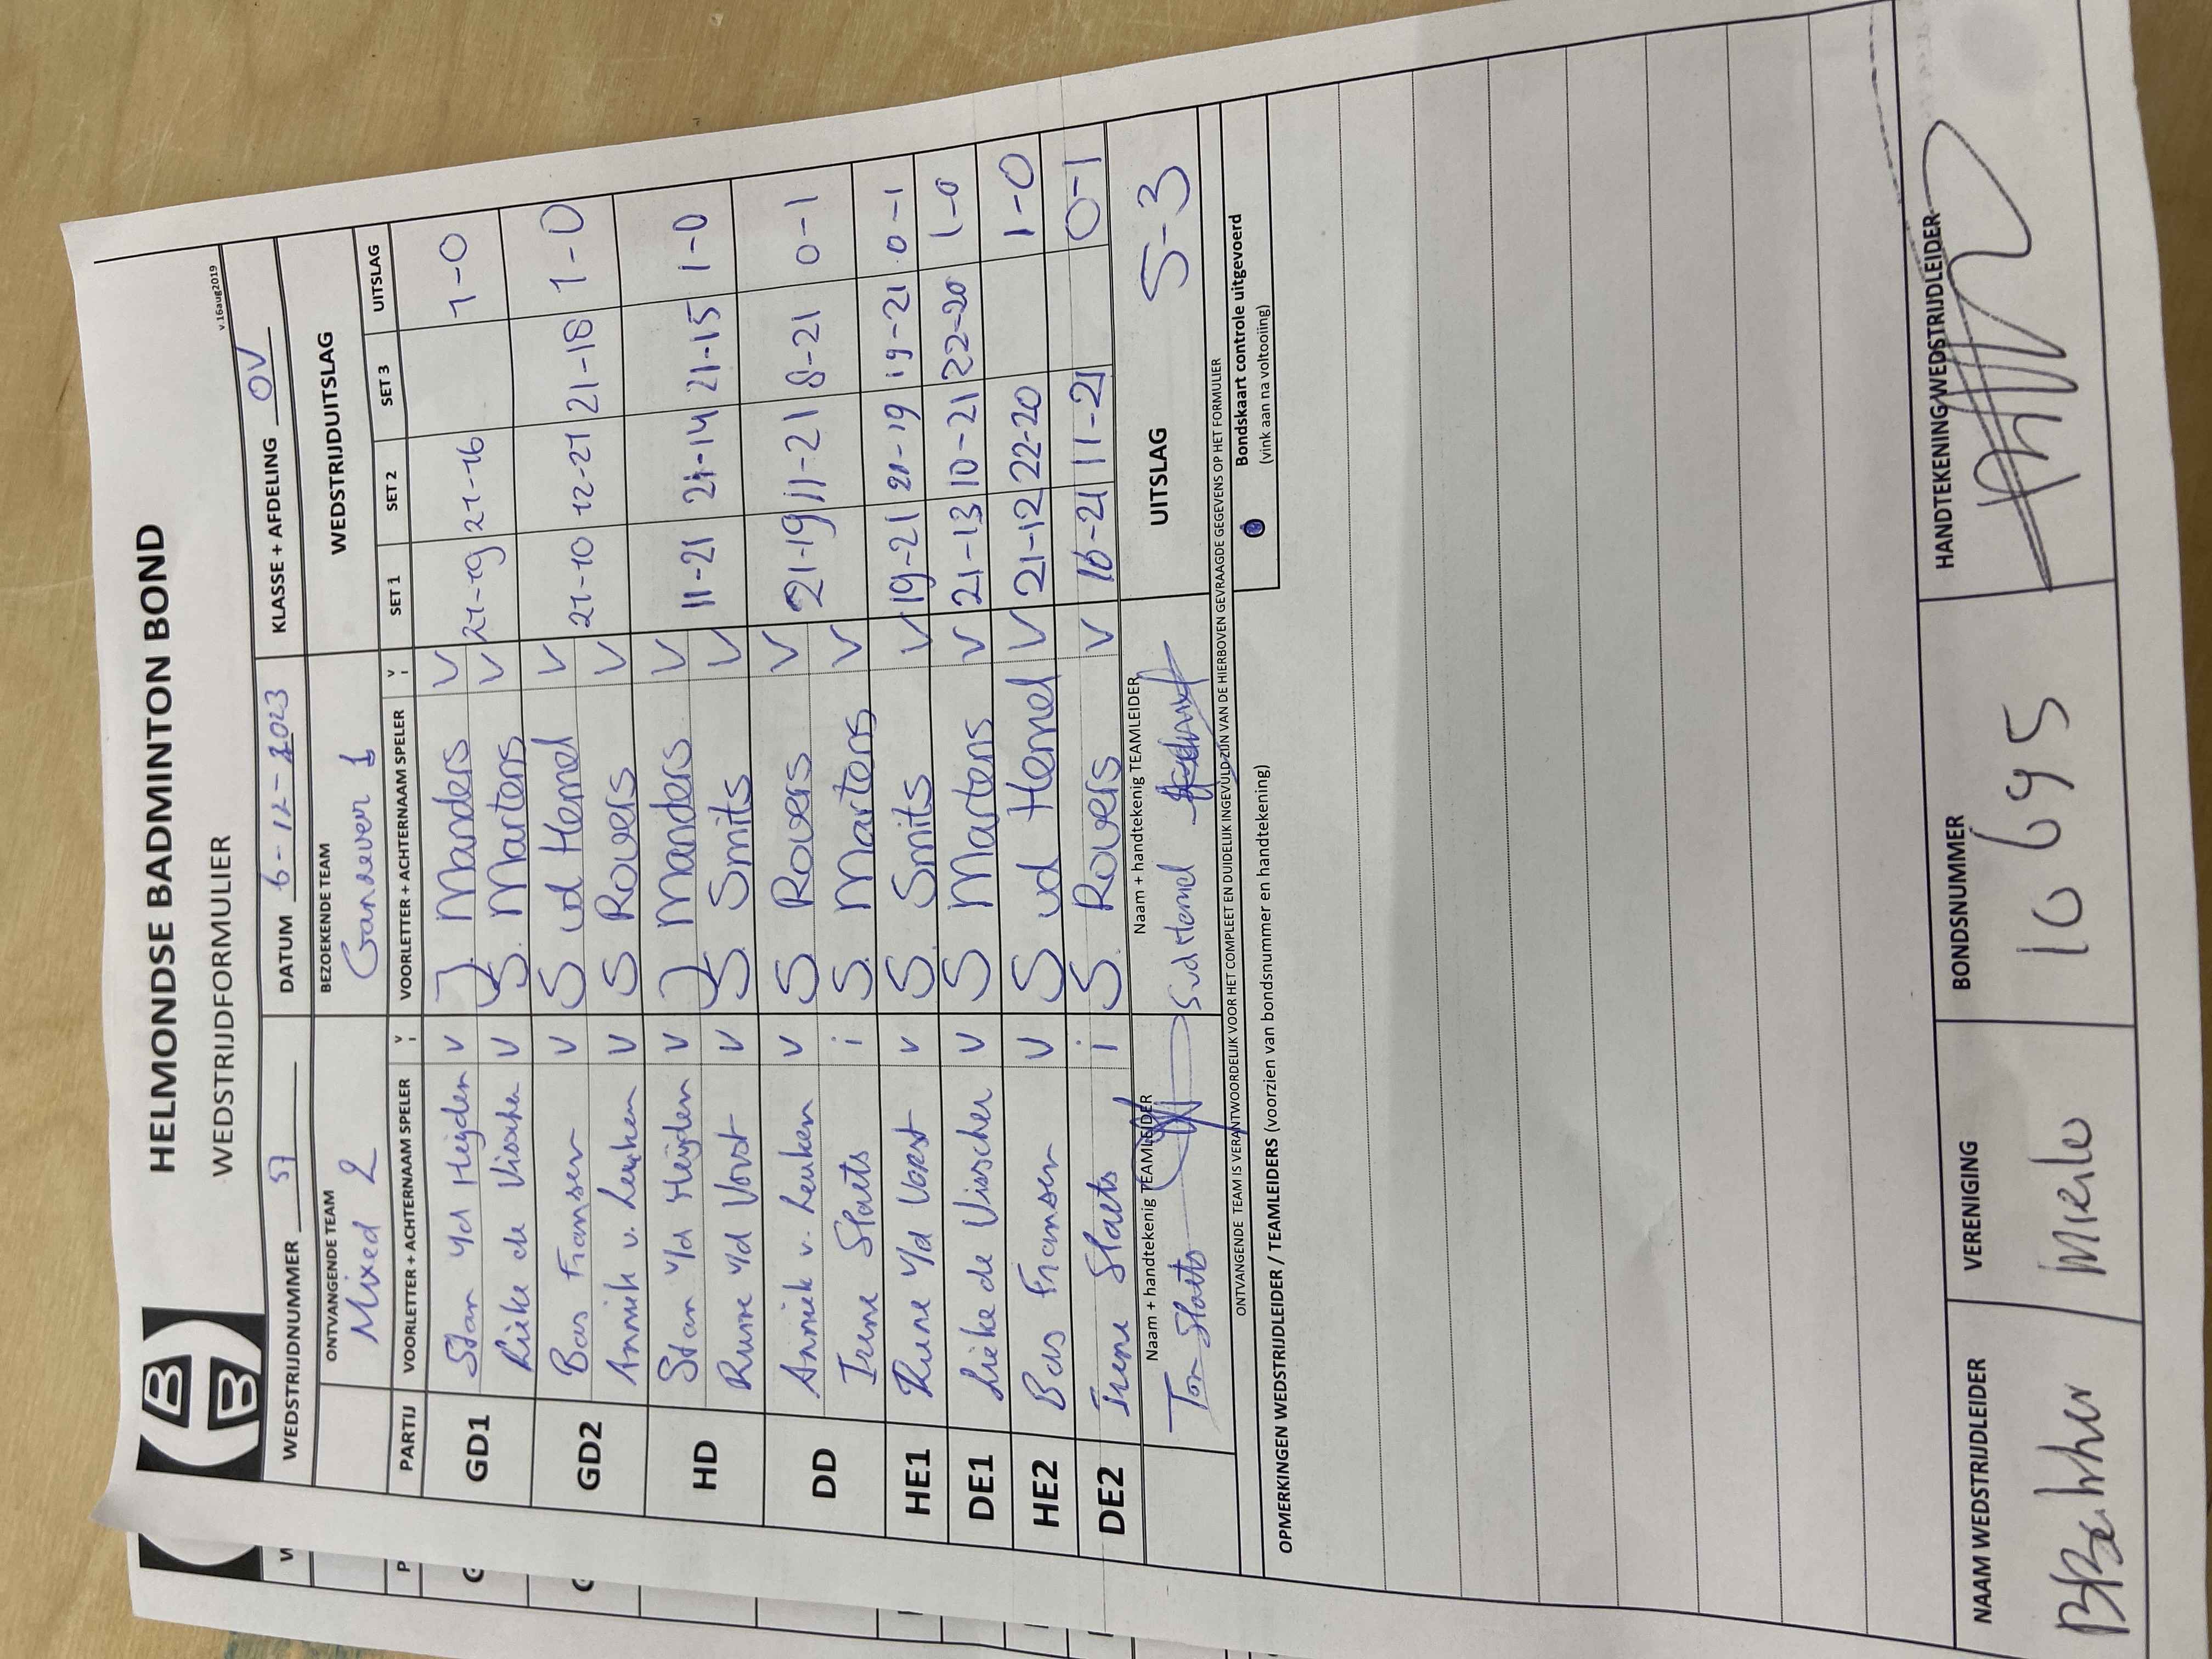 HELMONDSE BADMINTON BOND
WEDSTRIJDFORMULIER
v.16aug2019
WEDSTRIJDNUMMER 57 DATUM 6-12-2023 KLASSE + AFDELING OV
ONTVANGENDE TEAM BEZOEKENDE TEAM WEDSTRIJDUITSLAG
Mixed 2 Ganzeveer 1
PARTIJ VOORLETTER + ACHTERNAAM SPELER v i VOORLETTER + ACHTERNAAM SPELER v i SET 1 SET 2 SET 3 UITSLAG
GD1 Stan v/d Heijden v J Manders v 21-19 21-16 1-0
Lieke de Visscher v S. Martens v
GD2 Bas Fransen v S vd Hemel v 21-10 12-21 21-18 1-0
Anniek v. Leuken v S Rovers v
HD Stan v/d Heijden v J Manders v 11-21 21-14 21-15 1-0
Rune v/d Vorst v S. Smits v
DD Anniek v. Leuken v S Rovers v 21-19 11-21 8-21 0-1
Irene Slaets i S. Martens v
HE1 Rune v/d Vorst v S. Smits v 19-21 21-19 19-21 0-1
DE1 Lieke de Visscher v S Martens v 21-13 10-21 22-20 1-0
HE2 Bas Fransen v S vd Hemel v 21-12 22-20 1-0
DE2 Irene Slaets i S. Rovers v 16-21 11-21 0-1
Naam + handtekenig TEAMLEIDER Naam + handtekenig TEAMLEIDER UITSLAG 5-3
Ton Slaets S vd Hemel
ONTVANGENDE TEAM IS VERANTWOORDELIJK VOOR HET COMPLEET EN DUIDELIJK INGEVULD ZIJN VAN DE HIERBOVEN GEVRAAGDE GEGEVENS OP HET FORMULIER
OPMERKINGEN WEDSTRIJDLEIDER / TEAMLEIDERS (voorzien van bondsnummer en handtekening)
Bondskaart controle uitgevoerd
(vink aan na voltooiing)
NAAM WEDSTRIJDLEIDER VERENIGING BONDSNUMMER HANDTEKENING WEDSTRIJDLEIDER
Mierlo 10695